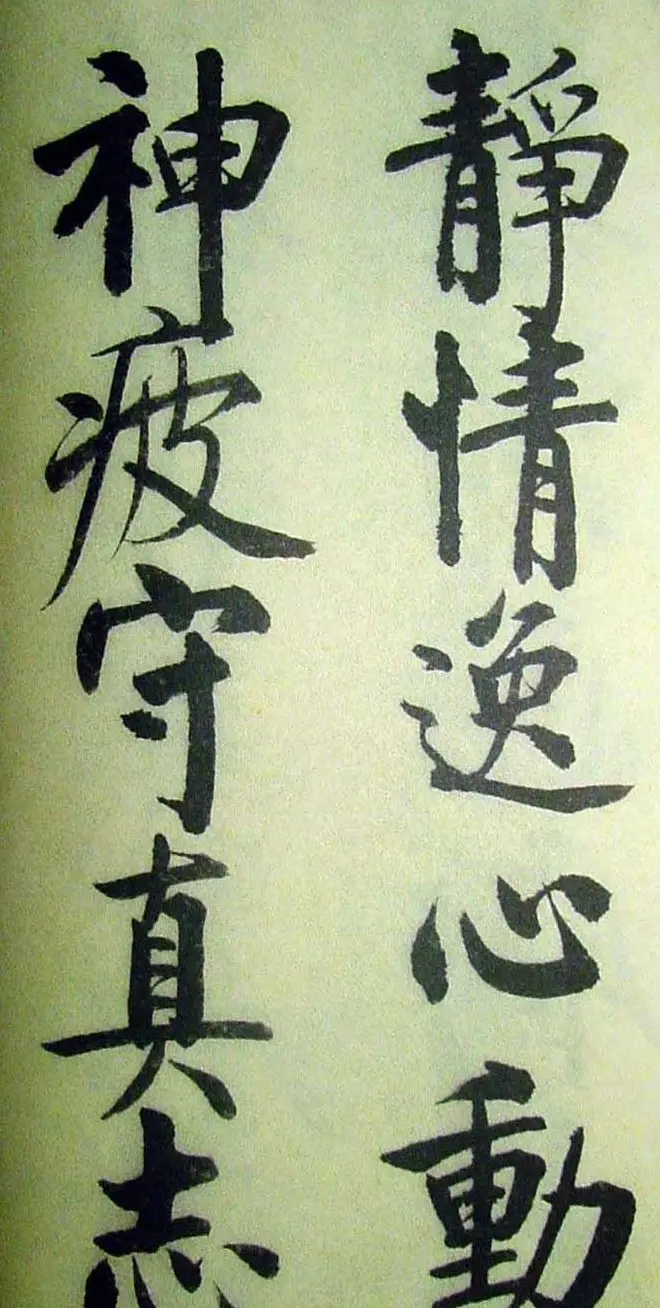 靜情逸心動
神疲守真志